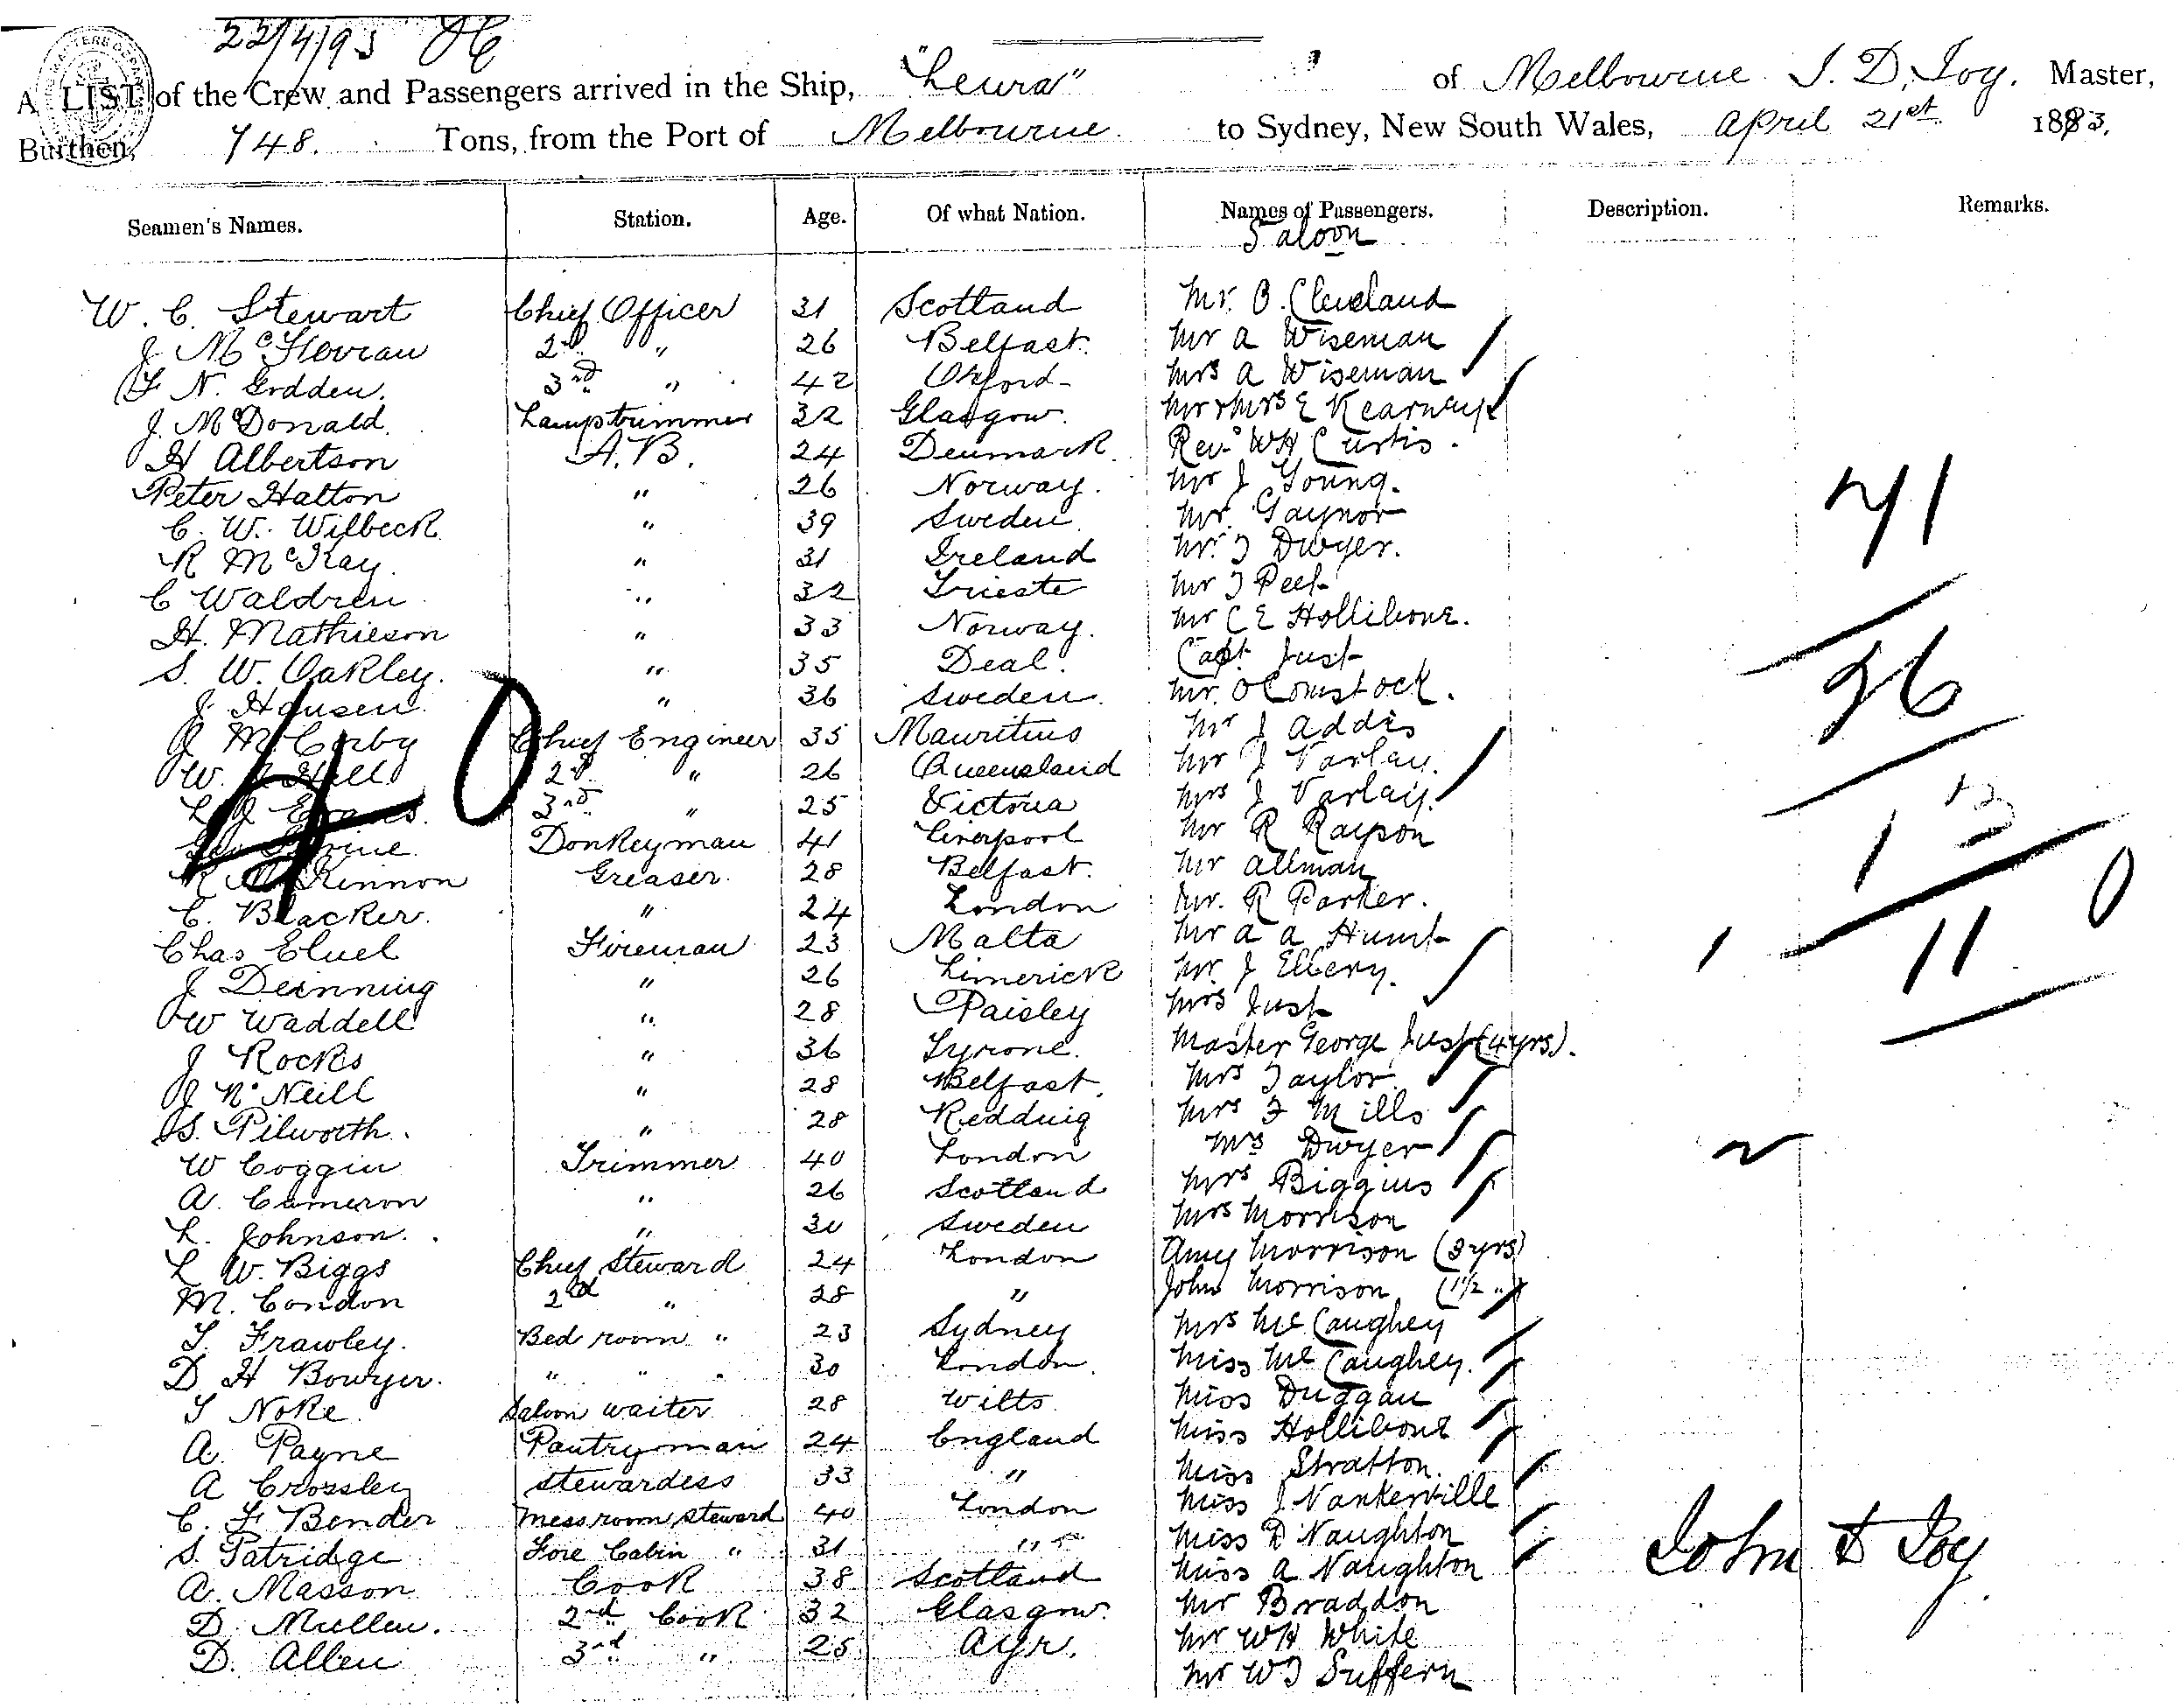 22/4/93
A LIST of the Crew and Passengers arrived in the Ship, "Leura" of Melbourne J. D. Joy. Master,
Burthen, 748. Tons, from the Port of Melbourne to Sydney, New South Wales, April 21st 1893.
Seamen's Names. Station. Age. Of what Nation. Names of Passengers. Description. Remarks.
Saloon
W. C. Stewart Chief Officer 31 Scotland Mr. O. Cleveland
J. Mc 2nd " 26 Belfast. Mr A Wiseman
F N. Godden. 3rd " 42 Oxford Mrs A Wiseman
J. McDonald. Lamptrimmer 32 Glasgow. Mr & Mrs E Kearney
H Albertson A.B. 24 Denmark. Revd WH Curtis.
Peter Halton " 26 Norway. Mr J Young.
C. W. Wilbeck " 39 Sweden Mr. Gaynor
R McKay. " 31 Ireland Mr. T Dwyer.
C Waldren " 32 Trieste Mr T Peel
H. Mathieson " 33 Norway. Mr C E Hollibone.
S. W. Oakley. " 35 Deal. Capt. Just
J. Hansen " 36 Sweden. Mr. O Comstock.
J McCorby Chief Engineer 35 Mauritius Mr J Addis
W. J Hill 2nd " 26 Queensland Mr J Varley.
L J Evans. 3rd " 25 Victoria Mrs J Varley.
Donkeyman 41 Liverpool Mr R Rayson
R McKinnon Greaser. 28 Belfast. Mr Allman
C. Blacker. " 24 London Mr. R Parker.
Chas Cluel Fireman 23 Malta Mr A A Hunt
J Deinning " 26 Limerick Mr. J Ellery.
W Waddell " 28 Paisley Mrs Just
J Rocks " 36 Tyrone. Master George Just (4 yrs).
J N'Neill " 28 Belfast. Mrs Taylor
S. Pilworth. " 28 Redding Mrs F Mills
W Coggin Trimmer 40 London Mrs Dwyer
A. Cameron " 26 Scotland Mrs Biggins
L. Johnson. " 30 Sweden Mrs Morrison
L W. Biggs Chief Steward 24 London Amy Morrison (3 yrs)
M. Condon 2nd " 28 " John Morrison (1½ ")
T. Frawley. Bed room " 23 Sydney Mrs McCaughey
D H Bowyer. " " " 30 London. Miss McCaughey.
T Noke. Saloon waiter 28 Wilts Miss Duggan
A. Payne Pantryman 24 England Miss Hollibone
A Crossley Stewardess 33 " Miss Stratton.
C. F Bender Messroom steward 40 London Miss J Nankerville
S. Patridge Fore Cabin " 31 " Miss D Naughton
A. Masson Cook 38 Scotland Miss A Naughton
D. Mullen. 2nd Cook 32 Glasgow. Mr Braddon
D. Allen 3rd " 25 Ayr. Mr WH White
Mr WJ Suffern
40
71
36
13
11 0
1
2
John D Joy